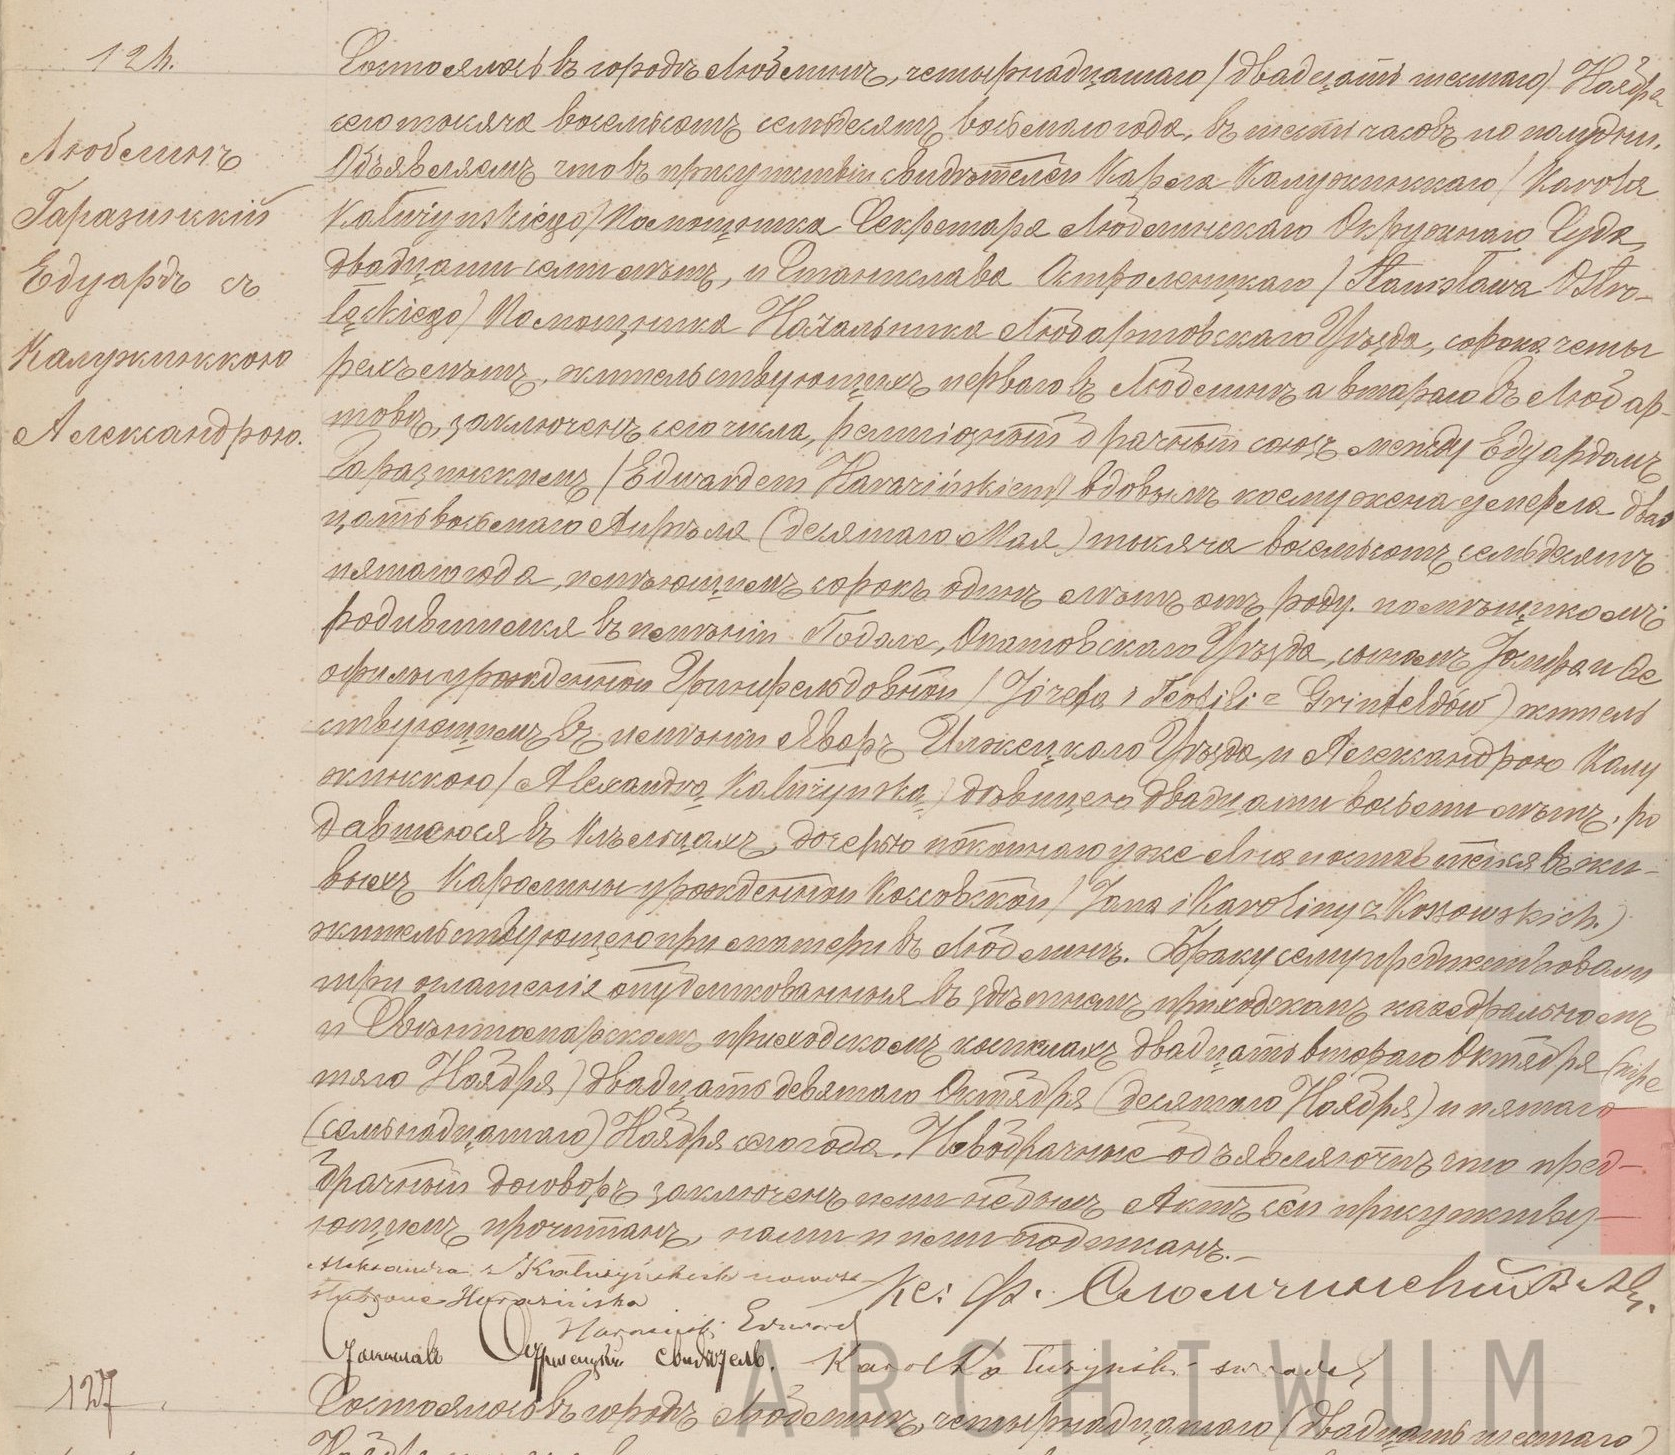 126.
Люблинъ
Гаразинскій
Едуардъ съ
Калужинскою
Александрою.
Состоялось въ городѣ Люблинѣ, четырнадцатаго (двадцать шестаго) Ноября
сего тысяча восемьсотъ семьдесятъ восьмаго года, въ шесть часовъ по полудни.
Объявляемъ что въ присутствіи свидѣтелей Кароля Калужинскаго (Karola
Kałużyńskiego) Помощника Секретаря Люблинскаго Окружнаго Суда,
двадцати семи лѣтъ, и Станислава Остроленцкаго (Stanisława Ostro-
łęckiego) Помощника Начальника Любартовскаго Уѣзда, сорока четы
рехъ лѣтъ, жительствующихъ перваго въ Люблинѣ а втораго въ Любар-
товѣ, заключенъ сего числа, религіозный брачный союзъ между Едуардомъ
Гаразинскимъ (Edwardem Harazińskiem) вдовымъ коего жена умерла двад
цать восьмаго Апрѣля (десятаго Мая) тысяча восемьсотъ семьдесятъ
пятаго года, имѣющимъ сорокъ одинъ лѣтъ отъ роду, помѣщикомъ
родившимся въ имѣніи Подоле, Опатовскаго Уѣзда, сыномъ Іосифа и Ѳе
офили урожденной Гринфельдовной (Józefa i Teofili z Grinfeldów) житель
ствующимъ въ имѣніи Яворъ Илжецкаго Уѣзда, и Александрою Калу
жинскою (Alexandrą Kałużyńską) дѣвицею двадцати восьми лѣтъ, ро
дившеюся въ Кѣльцахъ, дочерью покойнаго уже Яна и оставшейся въ жи-
выхъ Каролины урожденной Коссовской (Jana i Karoliny z Kossowskich)
жительствующею при матери въ Люблинѣ. Браку сему предшествовали
три оглашенія опубликованныя въ здѣшнемъ приходскомъ каѳедральномъ
и приходскомъ костелахъ двадцать втораго Октября (тре
тяго Ноября) двадцать девятаго Октября (десятаго Ноября) и пятаго
(семьнадцатаго) Ноября сего года. Новобрачные объявляютъ что пред-
брачный договоръ заключенъ ими не былъ. Актъ сей присутству-
ющимъ прочитанъ, нами и ими подписанъ.-
Aleksandra z Kałużyńskich nowoza-
ślubiona Harazińska
Кс: Ф.
Haraziński Edward
Станиславъ Остроленцкій свидѣтель.
Karol Kałużyński
ARCHIWUM
127.
Состоялось въ городѣ Люблинѣ, четырнадцатаго (двадцать шестаго)